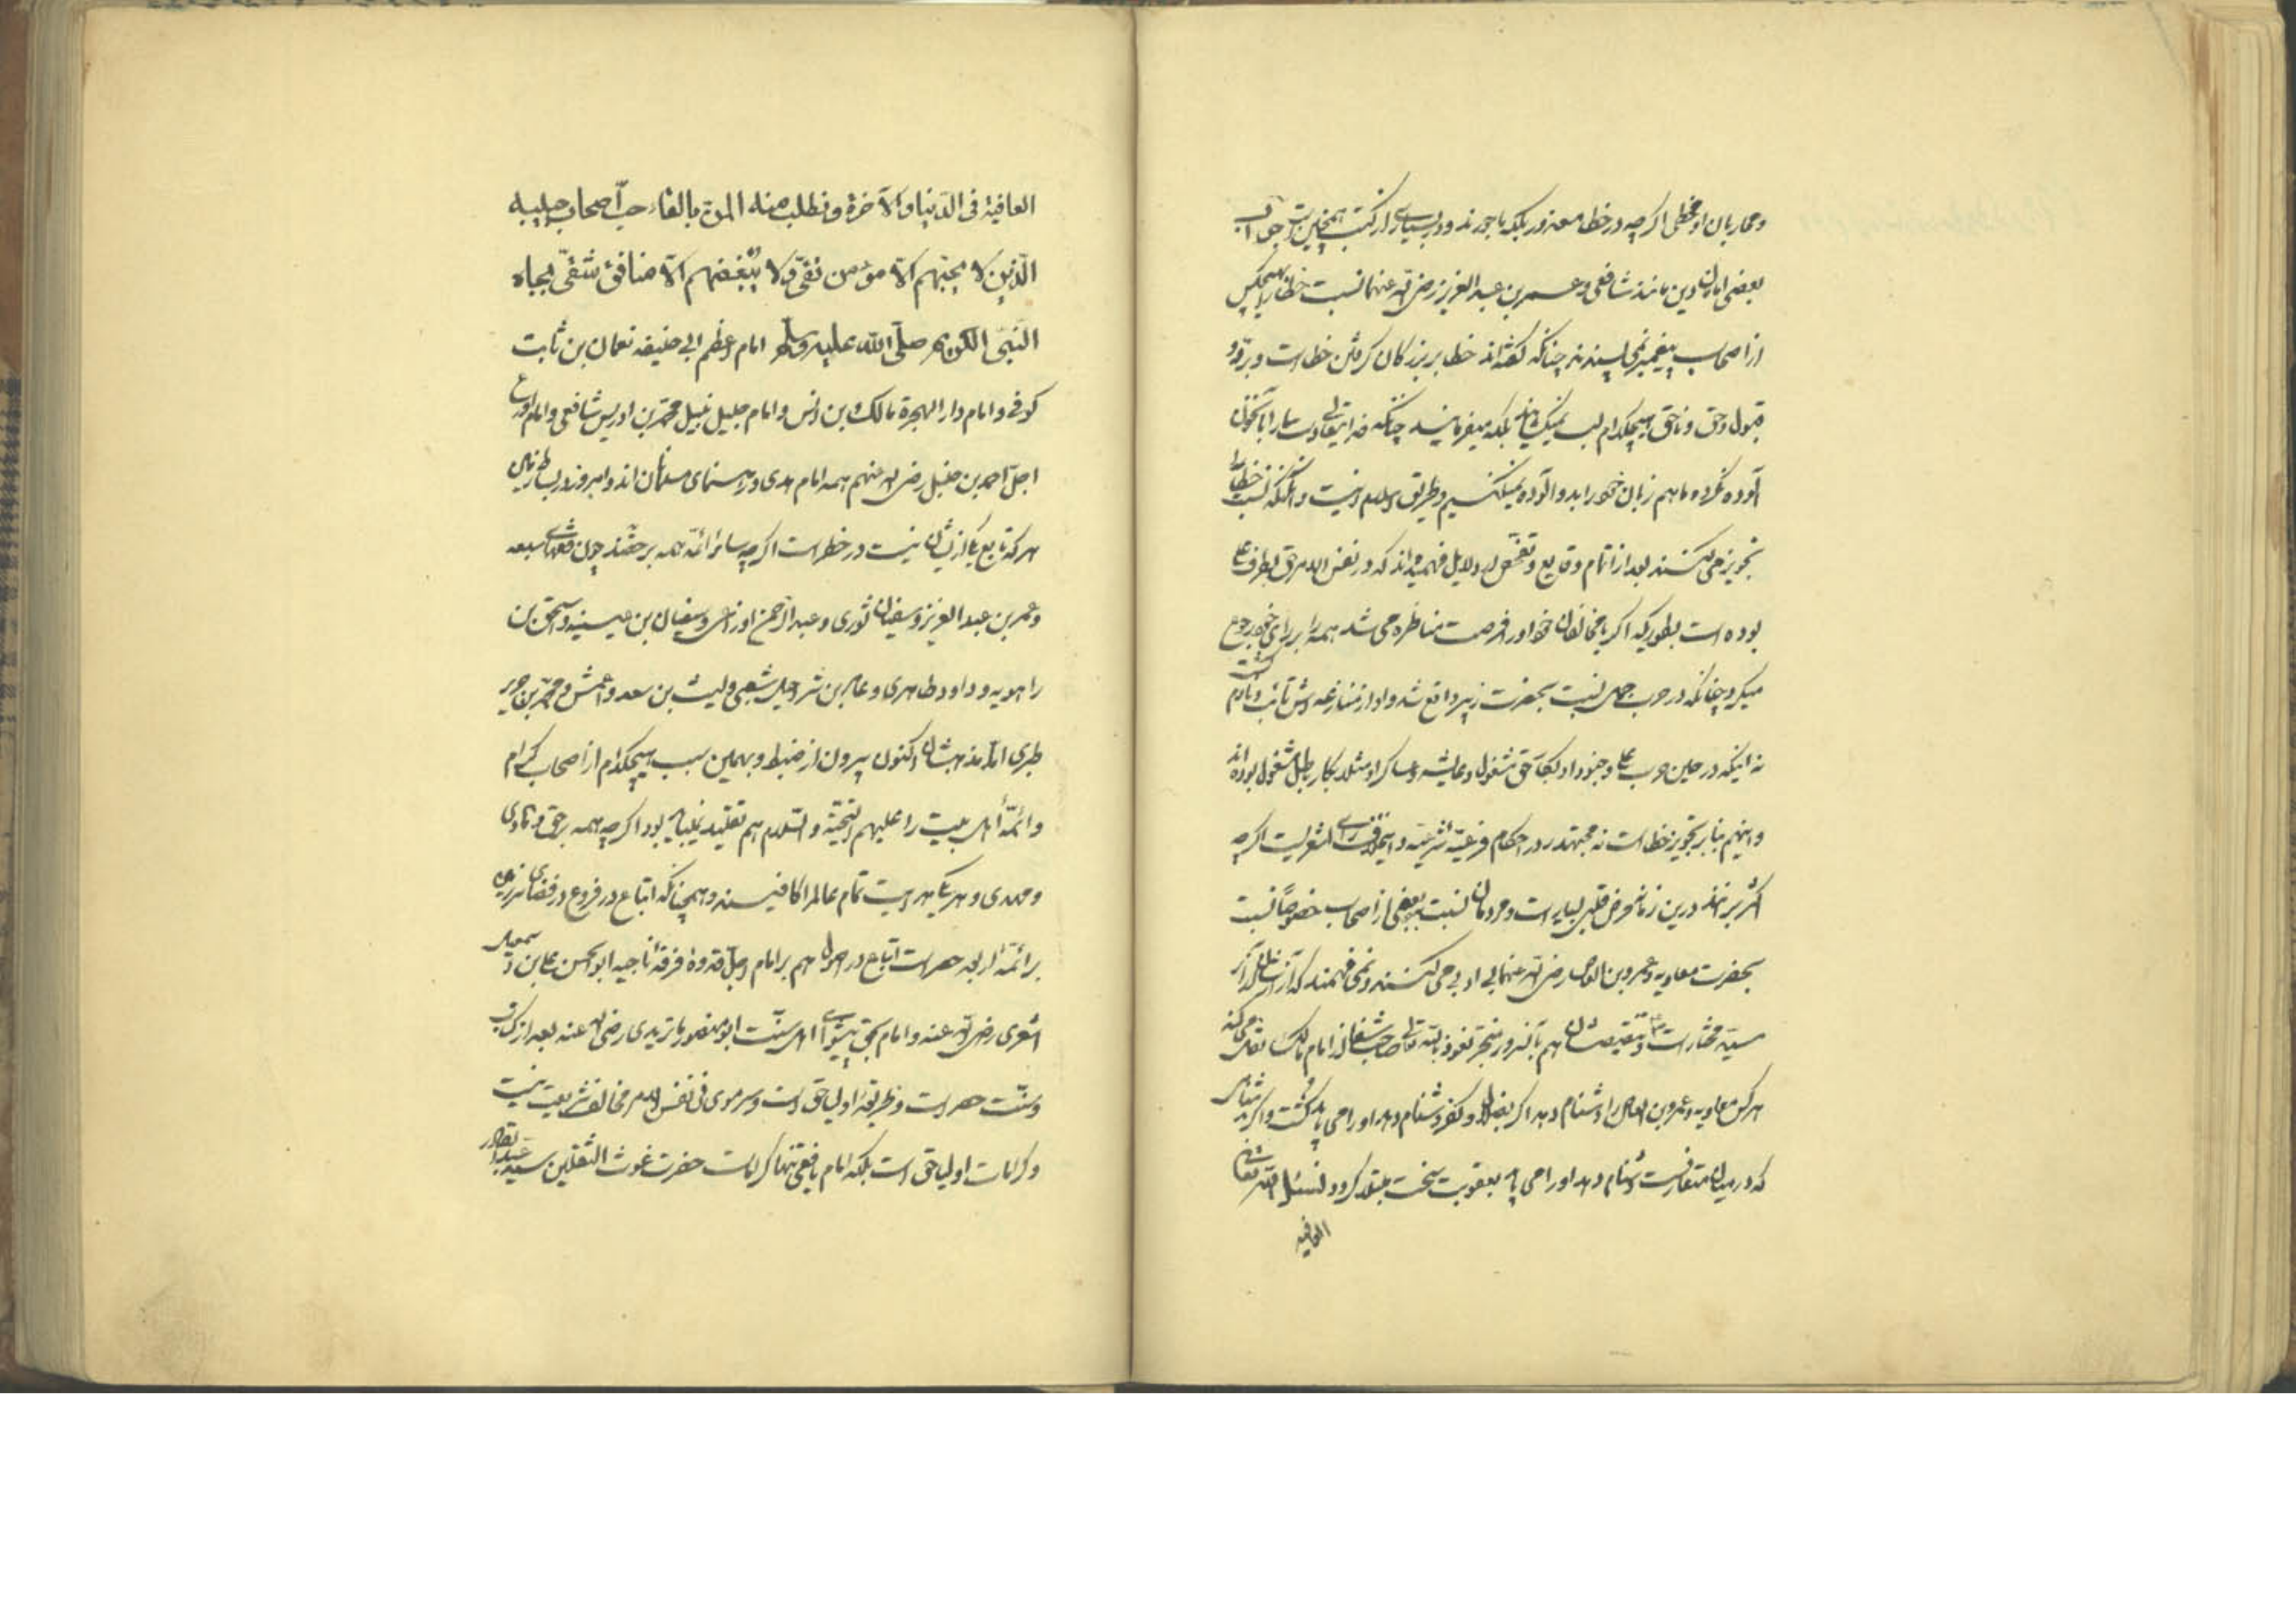 و محاربان او مخطی اگرچه در خطا معذور بلکه ماجورند و در بسیاری از کتب همچنین است جواب
بعضی امامان دین مانند شافعی و عمر بن عبد العزیز رضی الله عنهما نسبت خطا را بهیچکس
از اصحاب پیغمبر نمی پسندند چنانکه گفته اند خطا بر بزرگان گرفتن خطا است و برد و
قبول و حق و ناحق هیچکدام لب نمیکشایند بلکه میفرمایند چنانکه خدایتعالی دست ما را بآنخون
آلوده نکرده ما هم زبان خود را بدو آلوده نمیکنیم و طریق اسلم اینست و آنکه نسبت خطا را
تجویز می کنند بعد از اتمام وقایع و تفحص دلایل فهمیده اند که در نفس الامر حق بطرف علی
بوده است بطوریکه اگر با مخالفان خود او را فرصت مناظره می شد همه را برای خود رجوع
میکرد چنانکه در حرب جمل نسبت بحضرت زبیر واقع شد و او از منازعه اش تائب و نادم گشت
نه اینکه در حین حرب علی و جنود او بکار حق مشغول و عایشه و عساکر او مثلا بکار باطل مشغول بوده اند
و اینهم بنا بر تجویز خطا است نه مجتهد در احکام فرعیه شرعیه و اینموافق رای اشعریست اگرچه
اکثر برانند درین زمانه مرض قلبی بسیار است و مردمان نسبت ببعضی از اصحاب خصوصا نسبت
بحضرت معاویه و عمرو بن العاص رضی الله عنهما بی ادبی می کنند و نمی فهمند که
سید مختار است و تنقیص ایشان هم بآنسرور منجر نعوذ بالله تعالی صاحب شفا از امام مالک نقل می کند
هر کس معاویه و عمرو بن العاص را دشنام دهد اگر بضلال و کفر دشنام دهد او را می باید کشت و اگر بدشنامی
که در میان متعارفست دشنام دهد او را می باید بعقوبت سخت مبتلا کرد و نسئل الله تعالی
العافیه
العافیة فی الدنیا و الآخرة و نطلب منه المن بالقاء حب اصحاب حبیبه
الذین لا یحبهم الا مؤمن تقی و لا یبغضهم الا منافق شقی بجاه
النبی الکریم صلی الله علیه وسلم امام اعظم ابی حنیفه نعمان بن ثابت
کوفی و امام دار الهجرة مالک بن انس و امام جلیل نبیل محمد بن ادریس شافعی و امام اورع
اجل احمد بن حنبل رضی الله عنهم همه امام هدی و رهنمای مسلمانان اند و امروز در بساط زمین
هر که تابع یکی از ایشان نیست در خطر است اگرچه سائر ائمه همه بر حقند چون فقهای سبعه
و عمر بن عبد العزیز و سفیان ثوری و عبد الرحمن اوزاعی و سفیان بن عیینه و اسحق بن
راهویه و داود ظاهری و عامر بن شراحیل شعبی و لیث بن سعد و اعمش و محمد بن جریر
طبری اما مذهبشان اکنون بیرون از ضبط و بهمین سبب هیچکدام از اصحاب کرام
و ائمه اهل بیت را علیهم التحیة و السلام هم تقلید نمیباید بود اگرچه همه بر حق و هادی
و مهدی و هر یکی هدایت تمام عالم را کافیند و همچنانکه اتباع در فروع در فضای زمین
بر ائمه اربعه حصر است اتباع در اصول هم بر امام اجل قدوه فرقه ناجیه ابو الحسن علی بن اسمعیل
اشعری رضی الله عنه و امام بحق پیشوای اهل سنت ابو منصور ماتریدی رضی الله عنه بعد از کتاب
و سنت حصر است و طریقه اولیا حق است و سر موی فی نفس الامر مخالف شریعت نیست
و کرامات اولیا حق است بلکه امام یافعی تنها کرامات حضرت غوث الثقلین سید عبد القادر